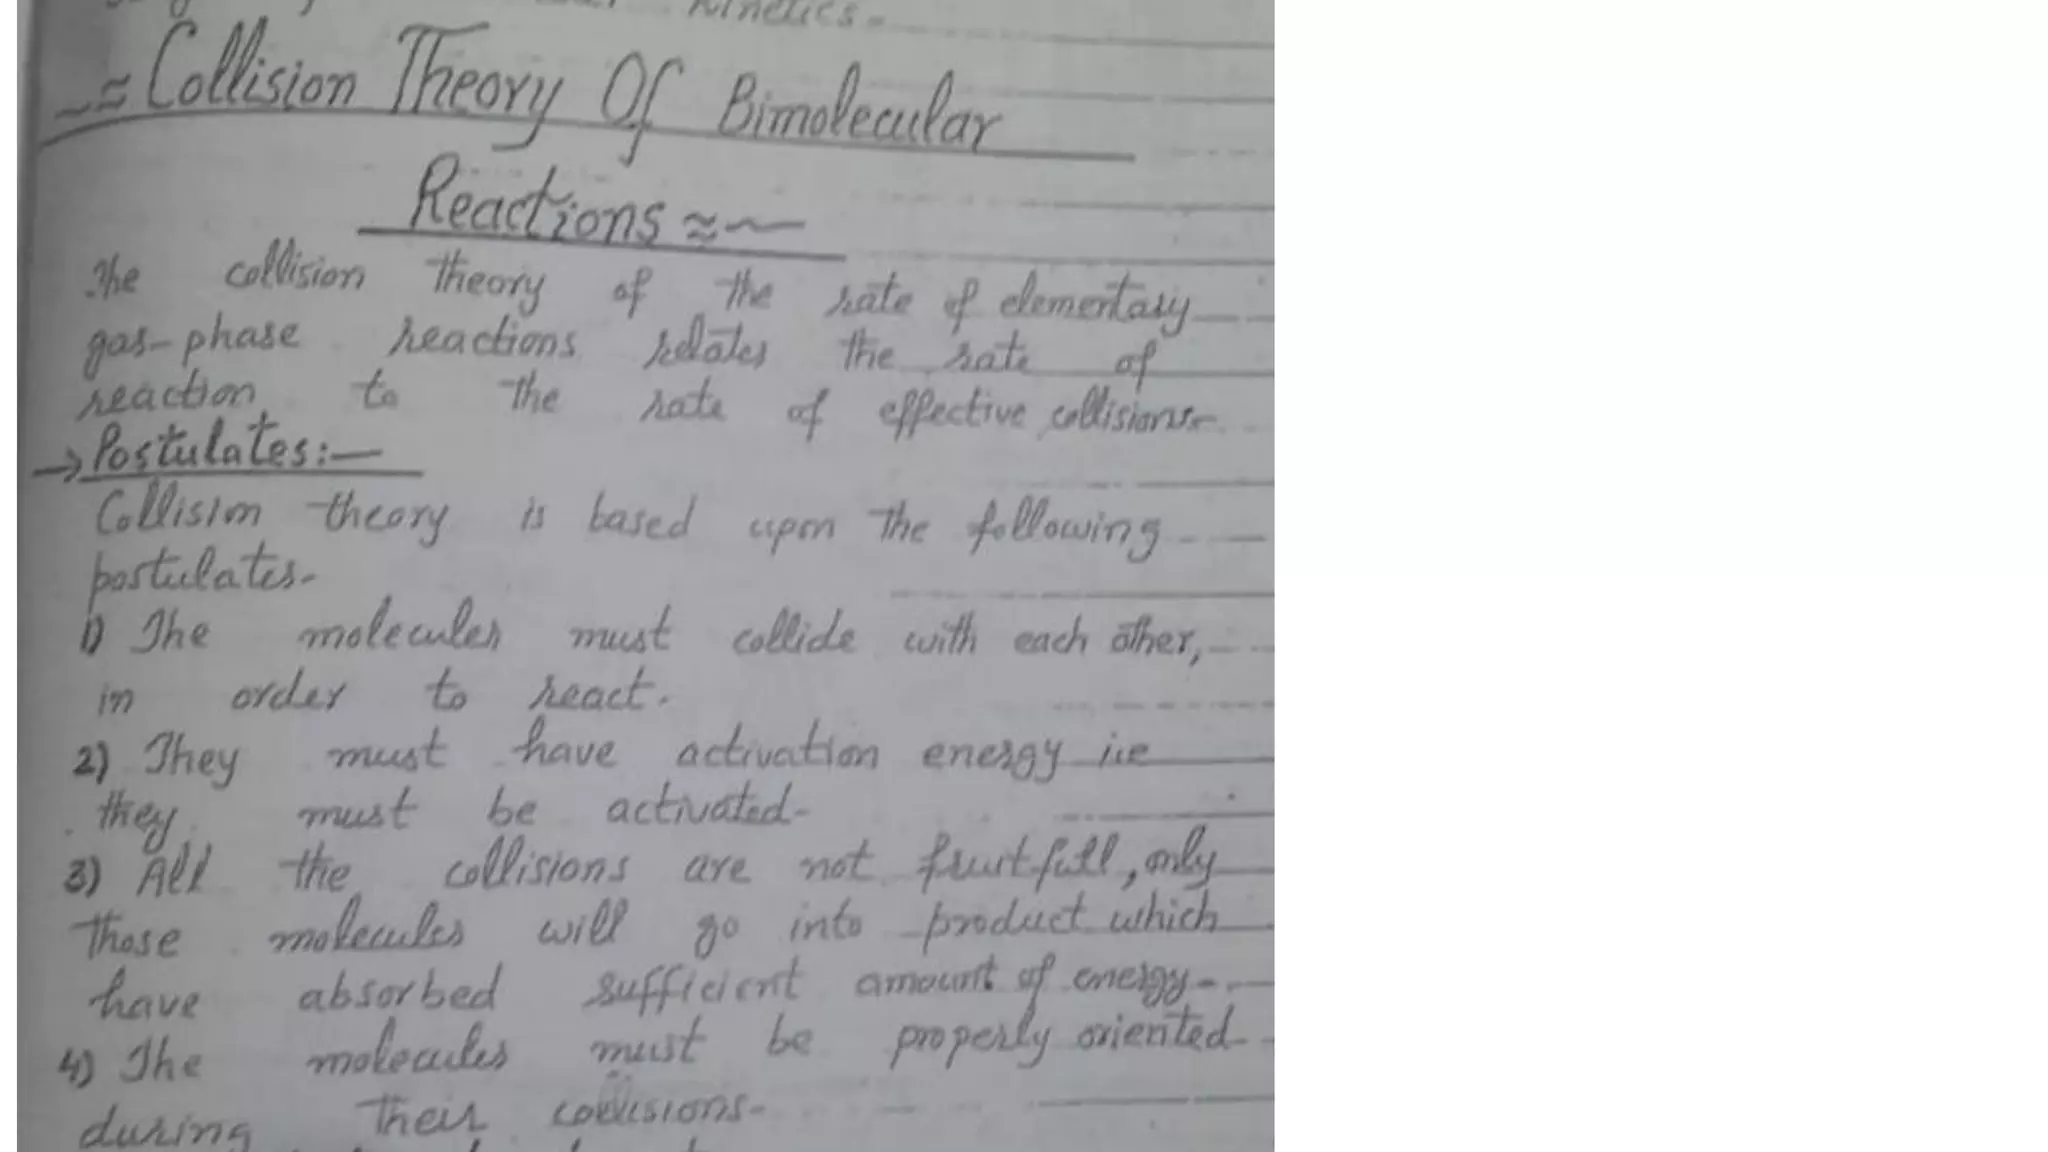 Kinetics.
~≈ Collision Theory Of Bimolecular
Reactions ≈~
The collision theory of the rate of elementary
gas-phase reactions relates the rate of
reaction to the rate of effective collisions.
→ Postulates:—
Collision theory is based upon the following
postulates.
1) The molecules must collide with each other,
in order to react.
2) They must have activation energy i.e
they must be activated.
3) All the collisions are not fruitfull, only
those molecules will go into product which
have absorbed sufficient amount of energy.
4) The molecules must be properly oriented
during their collisions.